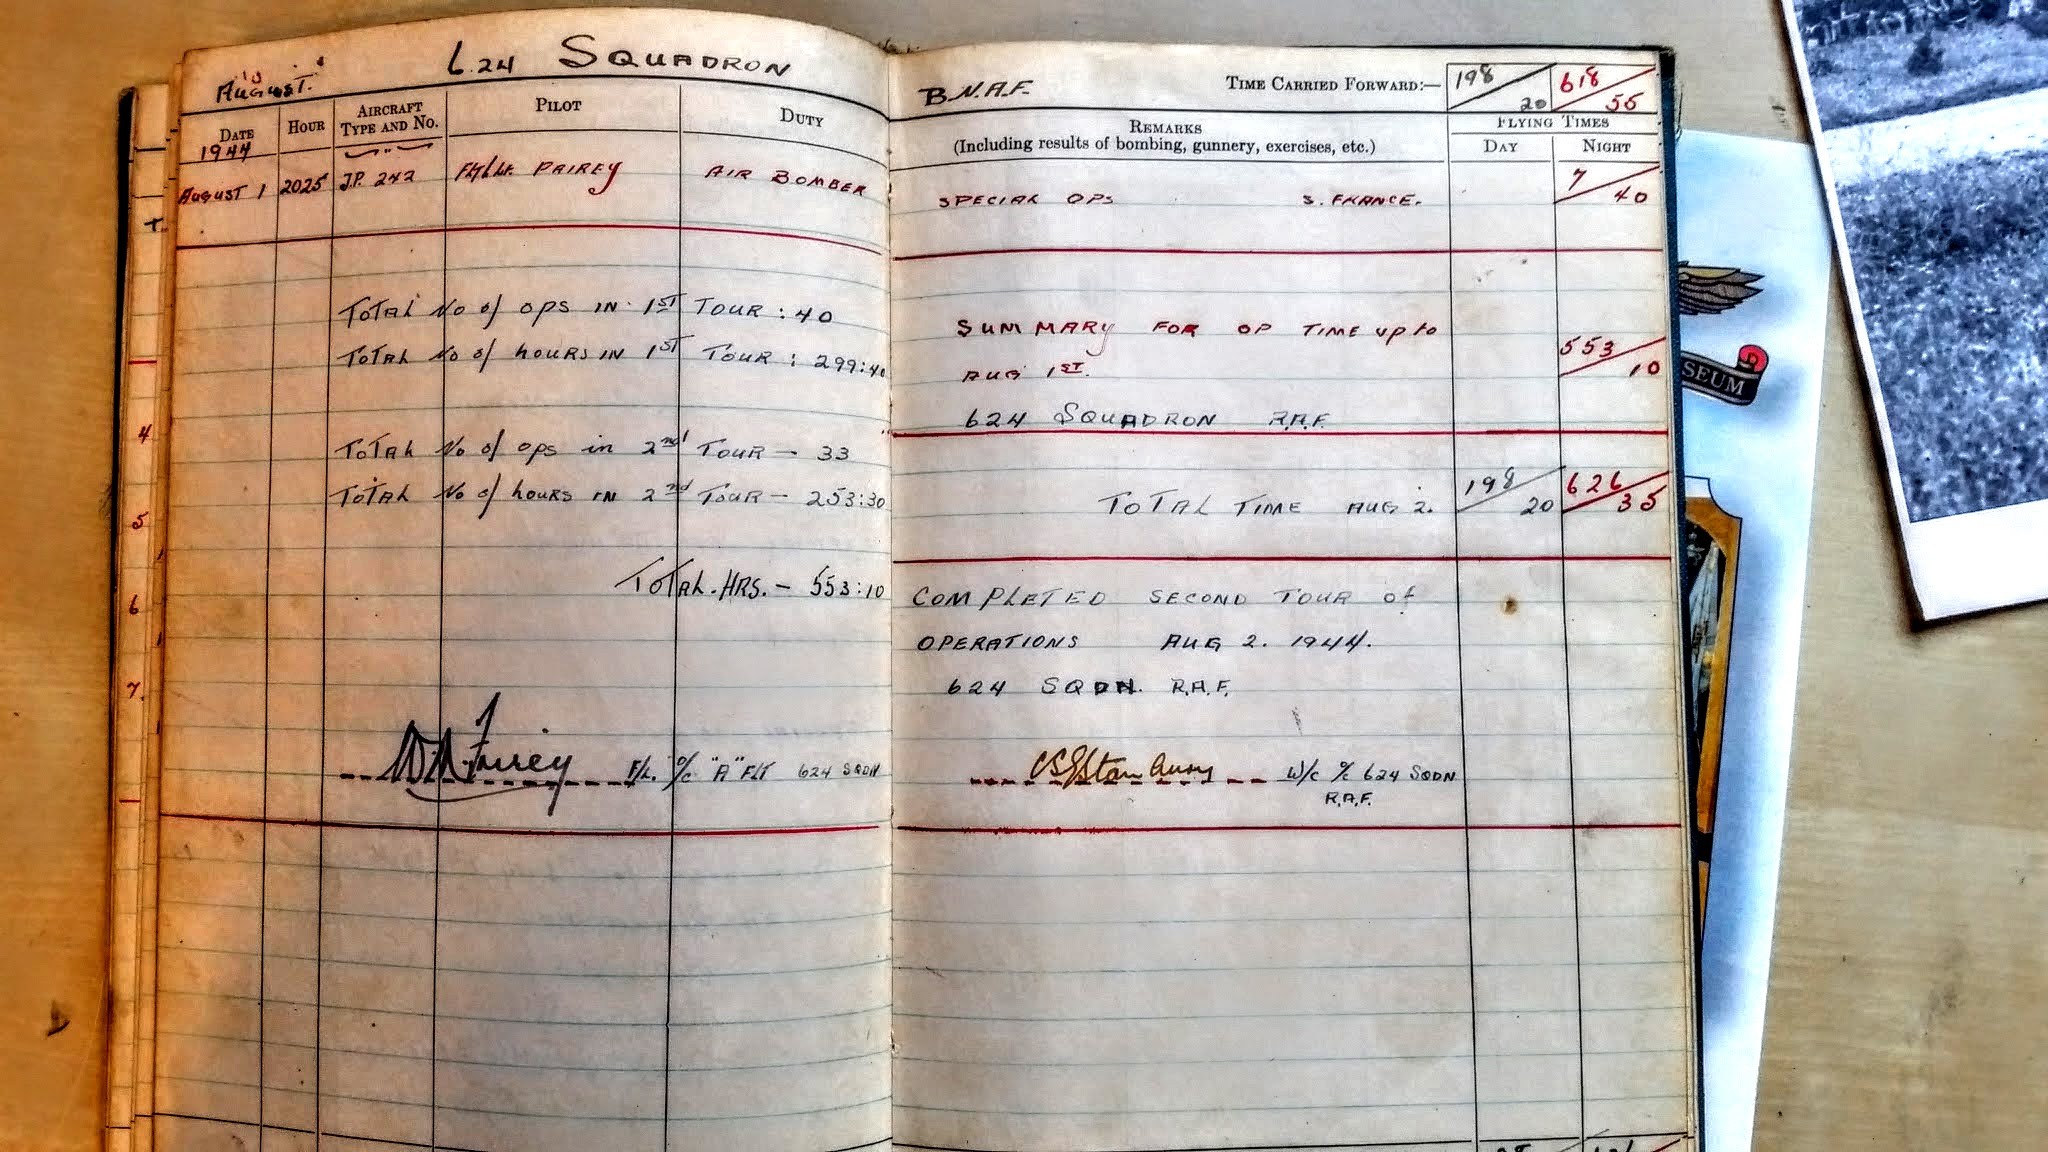 624 SQUADRON
AUGUST.
DATE
1944
HOUR
AIRCRAFT
TYPE AND No.
PILOT
DUTY
AUGUST 1 2025 J.P. 242 AIR BOMBER
TOTAL No of OPS IN 1ST TOUR : 40
TOTAL No of HOURS IN 1ST TOUR : 299:40
TOTAL No of OPS in 2nd TOUR — 33
TOTAL No of HOURS IN 2nd TOUR — 253:30
TOTAL. HRS. — 553:10
F/L. O/C "A" FLT 624 SQDN
4
5
6
7.
B.N.A.F.
TIME CARRIED FORWARD:—
198
20
618
55
REMARKS
(Including results of bombing, gunnery, exercises, etc.)
FLYING TIMES
DAY
NIGHT
SPECIAL OPS S. FRANCE.
7
40
SUMMARY FOR OP TIME up to
AUG 1ST.
553
10
624 SQUADRON R.A.F.
TOTAL TIME AUG 2.
198
20
626
35
COMPLETED SECOND TOUR of
OPERATIONS AUG 2. 1944.
624 SQDN. R.A.F.
W/C O/C 624 SQDN
R.A.F.
SEUM